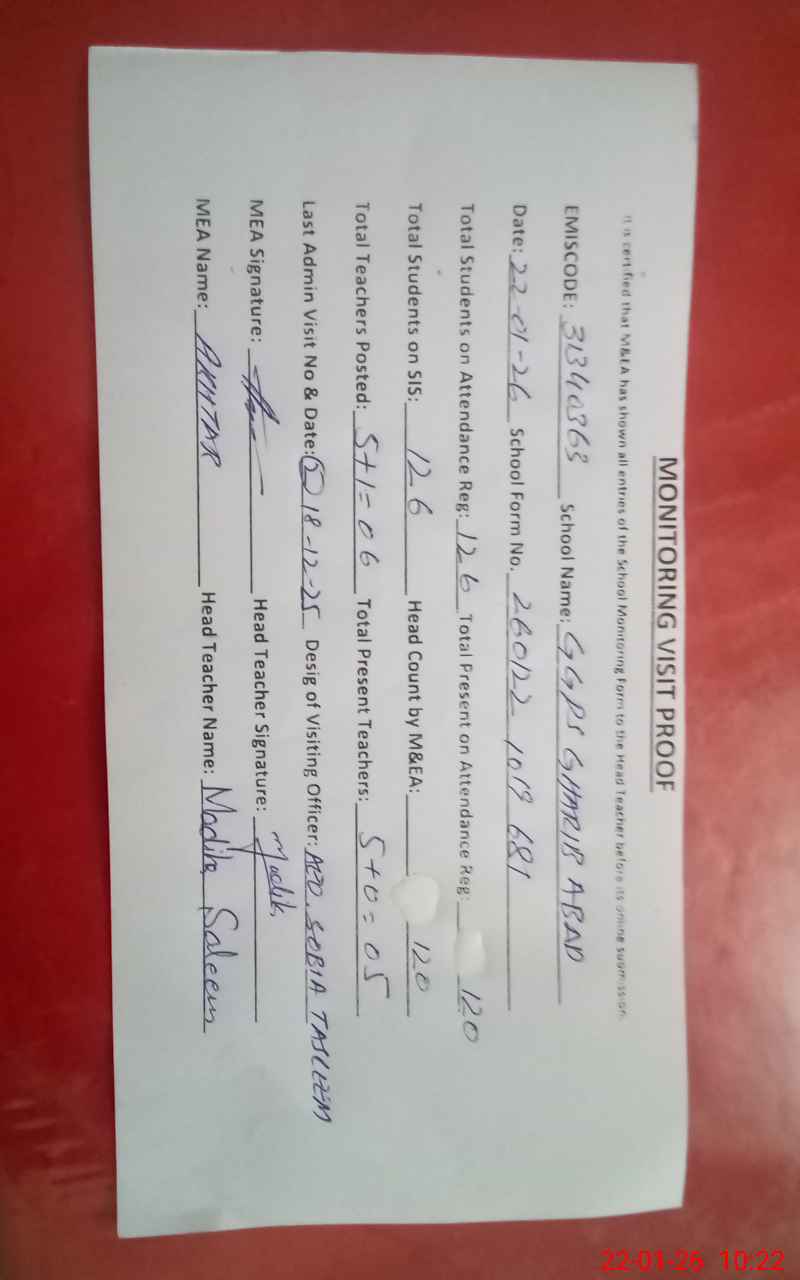 MONITORING VISIT PROOF
It is certified that M&EA has shown all entries of the School Monitoring Form to the Head Teacher before its online submission.
EMISCODE: 31340363 School Name: GGPS GHARIB ABAD
Date: 22-01-26 School Form No. 260122 1019 681
Total Students on Attendance Reg: 126 Total Present on Attendance Reg: 120
Total Students on SIS: 126 Head Count by M&EA: 120
Total Teachers Posted: 5+1=06 Total Present Teachers: 5+0=05
Last Admin Visit No & Date: (2) 18-12-25 Desig of Visiting Officer: AEO. SOBIA TASLEEM
MEA Signature: Head Teacher Signature: Madih
MEA Name: AKHTAR Head Teacher Name: Madiha Saleem
22-01-26 10:22